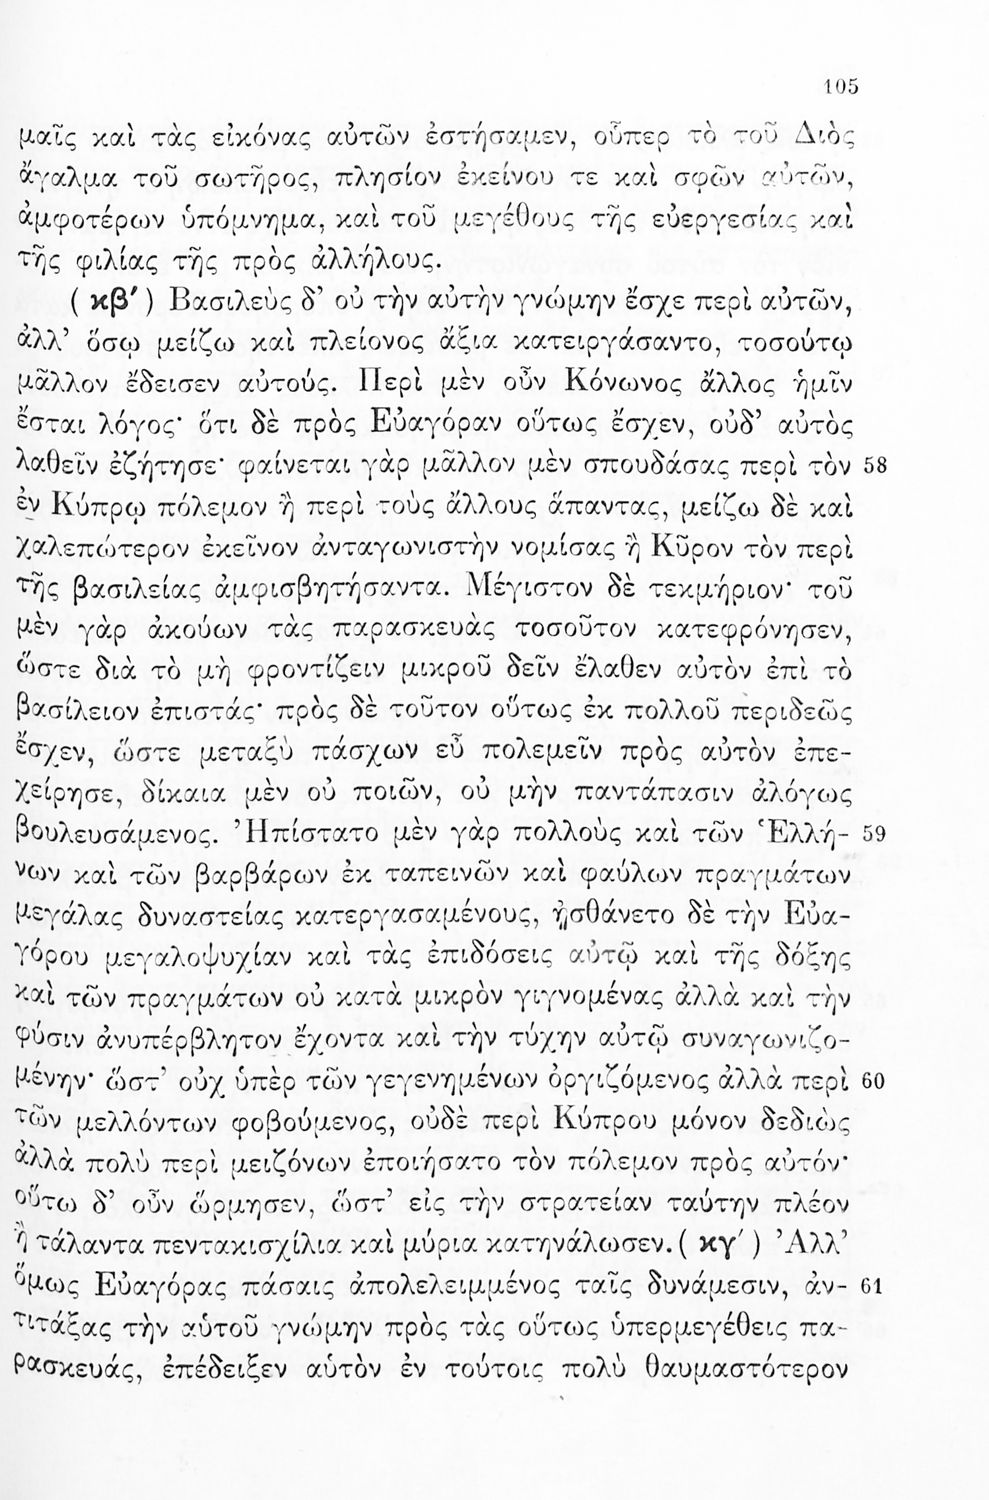 105
μαῖς καὶ τὰς εἰκόνας αὐτῶν ἐστήσαμεν, οὗπερ τὸ τοῦ Διὸς
ἄγαλμα τοῦ σωτῆρος, πλησίον ἐκείνου τε καὶ σφῶν αὐτῶν,
ἀμφοτέρων ὑπόμνημα, καὶ τοῦ μεγέθους τῆς εὐεργεσίας καὶ
τῆς φιλίας τῆς πρὸς ἀλλήλους.
( κβ′ ) Βασιλεὺς δ’ οὐ τὴν αὐτὴν γνώμην ἔσχε περὶ αὐτῶν,
ἀλλ’ ὅσῳ μείζω καὶ πλείονος ἄξια κατειργάσαντο, τοσούτῳ
μᾶλλον ἔδεισεν αὐτούς. Περὶ μὲν οὖν Κόνωνος ἄλλος ἡμῖν
ἔσται λόγος· ὅτι δὲ πρὸς Εὐαγόραν οὕτως ἔσχεν, οὐδ’ αὐτὸς
λαθεῖν ἐζήτησε· φαίνεται γὰρ μᾶλλον μὲν σπουδάσας περὶ τὸν 58
ἐν Κύπρῳ πόλεμον ἢ περὶ τοὺς ἄλλους ἅπαντας, μείζω δὲ καὶ
χαλεπώτερον ἐκεῖνον ἀνταγωνιστὴν νομίσας ἢ Κῦρον τὸν περὶ
τῆς βασιλείας ἀμφισβητήσαντα. Μέγιστον δὲ τεκμήριον· τοῦ
μὲν γὰρ ἀκούων τὰς παρασκευὰς τοσοῦτον κατεφρόνησεν,
ὥστε διὰ τὸ μὴ φροντίζειν μικροῦ δεῖν ἔλαθεν αὐτὸν ἐπὶ τὸ
βασίλειον ἐπιστάς· πρὸς δὲ τοῦτον οὕτως ἐκ πολλοῦ περιδεῶς
ἔσχεν, ὥστε μεταξὺ πάσχων εὖ πολεμεῖν πρὸς αὐτὸν ἐπε-
χείρησε, δίκαια μὲν οὐ ποιῶν, οὐ μὴν παντάπασιν ἀλόγως
βουλευσάμενος. Ἠπίστατο μὲν γὰρ πολλοὺς καὶ τῶν Ἑλλή- 59
νων καὶ τῶν βαρβάρων ἐκ ταπεινῶν καὶ φαύλων πραγμάτων
μεγάλας δυναστείας κατεργασαμένους, ᾐσθάνετο δὲ τὴν Εὐα-
γόρου μεγαλοψυχίαν καὶ τὰς ἐπιδόσεις αὐτῷ καὶ τῆς δόξης
καὶ τῶν πραγμάτων οὐ κατὰ μικρὸν γιγνομένας ἀλλὰ καὶ τὴν
φύσιν ἀνυπέρβλητον ἔχοντα καὶ τὴν τύχην αὐτῷ συναγωνιζο-
μένην· ὥστ’ οὐχ ὑπὲρ τῶν γεγενημένων ὀργιζόμενος ἀλλὰ περὶ 60
τῶν μελλόντων φοβούμενος, οὐδὲ περὶ Κύπρου μόνον δεδιὼς
ἀλλὰ πολὺ περὶ μειζόνων ἐποιήσατο τὸν πόλεμον πρὸς αὐτόν·
οὕτω δ’ οὖν ὥρμησεν, ὥστ’ εἰς τὴν στρατείαν ταύτην πλέον
ἢ τάλαντα πεντακισχίλια καὶ μύρια κατηνάλωσεν. ( κγ′ ) Ἀλλ’
ὅμως Εὐαγόρας πάσαις ἀπολελειμμένος ταῖς δυνάμεσιν, ἀν- 61
τιτάξας τὴν αὑτοῦ γνώμην πρὸς τὰς οὕτως ὑπερμεγέθεις πα-
ρασκευάς, ἐπέδειξεν αὑτὸν ἐν τούτοις πολὺ θαυμαστότερον